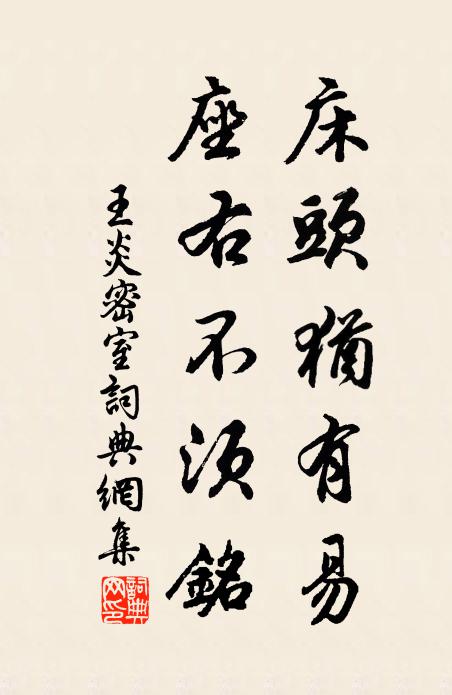 床頭猶有易
座右不須銘
王炎密室詞典網集
詞典網印